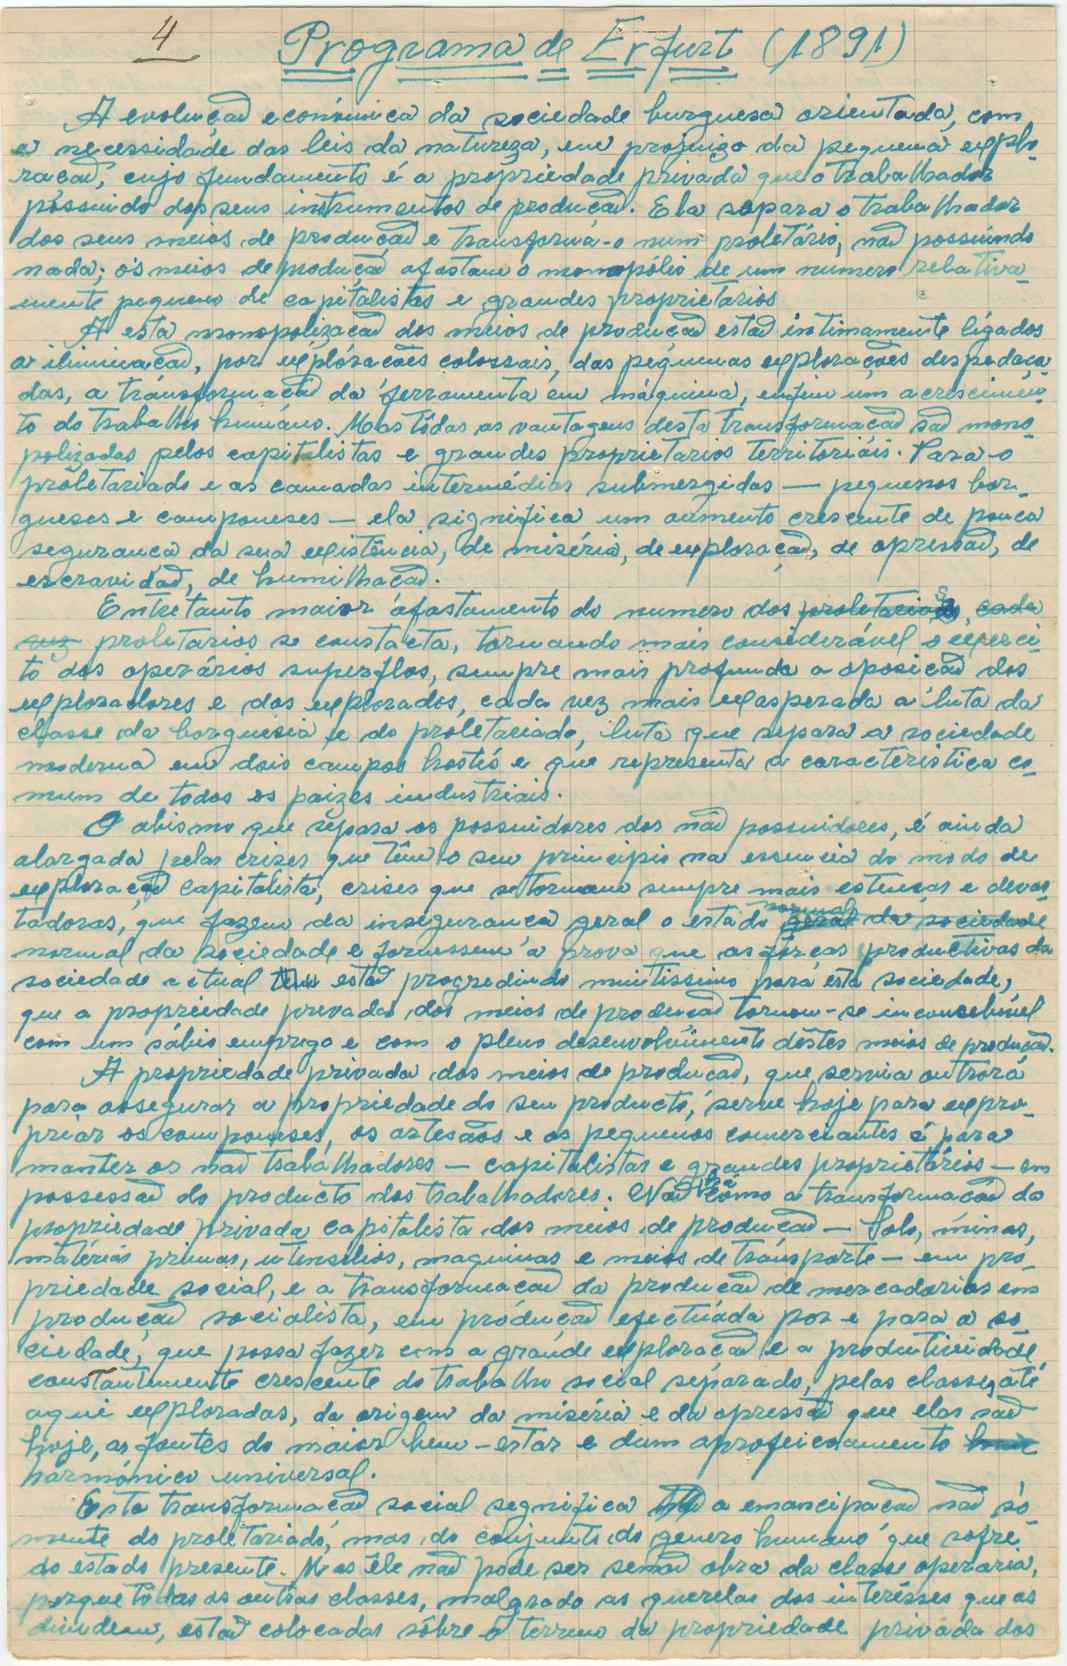 4
Programa de Erfurt (1891)
A evolução económica da sociedade burguesa orientada, com
a necessidade das leis da natureza, em projuizo da pequena explo-
ração, cujo fundamento é a propriedade privada que o trabalhador
possuido dos seus instrumentos de produção. Ela separa o trabalhador
dos seus meios de produção e transforma-o num proletário, não possuindo
nada; os meios de produção afastam o monopólio de um numero relativa-
mente pequeno de capitalistas e grandes proprietarios
A esta monopolização dos meios de produção estão intimamente ligados
a iluminação, por explorações colossais, das pequenas explorações despedaça-
das, a transformação da ferramenta em máquina, enfim um acrescimen-
to do trabalho humano. Mas tôdas as vantagens desta transformação são mono-
polizadas pelos capitalistas e grandes proprietarios territoriáis. Para o
proletariado e as camadas intermédias submergidas — pequenos bor-
gueses e camponeses — ela significa um aumento crescente de pouca
segurança da sua existência, de miséria, de exploração, de opressão, de
escravidão, de humilhação.
Entretanto maior afastamento do numero dos proletarios, cada
vez proletarios se constacta, tornando mais considerável o exerci-
to dos operários superflos, sempre mais profunda a oposição dos
exploradores e dos explorados, cada vez mais exasperada a luta da
classe da borguesia e do proletariado, luta que separa a sociedade
moderna em dois campos hostis e que representa a caracteristica co-
mum de todos os paizes industriais.
O abismo que separa os possuidores dos não possuidores, é ainda
alargada pelas crises que têm o seu principio na essencia do modo de
exploração capitalista, crises que se tornam sempre mais estensas e devas-
tadoras, que fazem da insegurança geral o estado normal geral da sociedade
normal da sociedade e fornessem a prova que as forças productivas da
sociedade actual estão progredindo muitissimo para esta sociedade,
que a propriedade privada dos meios de produção tornou-se inconcebivel
com um sábio emprego e com o pleno desenvolvimento destes meios de produção.
A propriedade privada dos meios de produção, que servia outrora
para assegurar a propriedade do seu producto, serve hoje para expro-
priar os componeses, os artesãos e os pequenos comerciantes é para
manter os não trabalhadores — capitalistas e grandes proprietários — em
possessão do producto dos trabalhadores. Não há como a transformação da
propriedade privada capitalista dos meios de produção — Solo, minas,
matérias primas, utensilios, maquinas e meios de transporte — em pro-
priedade social, e a transformação da produção de mercadorias em
produção socialista, em produção efectuada por e para a so-
ciedade, que possa fazer com a grande exploração e a produtividade
constantemente crescente do trabalho social separado, pelas classes até
aqui exploradas, da origem da miséria e da opressão que elas são
hoje, as fontes do maior bem-estar e dum aprofeiçoamento
harmónico universal.
Esta transformação social segnifica a emancipação não sò-
mente do proletariado, mas do conjunto do genero humano que sofre
do estado presente. Mas êle não pode ser senão obra da classe operaria,
porque tôdas as outras classes, malgrado as querelas dos interésses que as
dividem, estão colocadas sôbre o terreno da propriedade privada dos